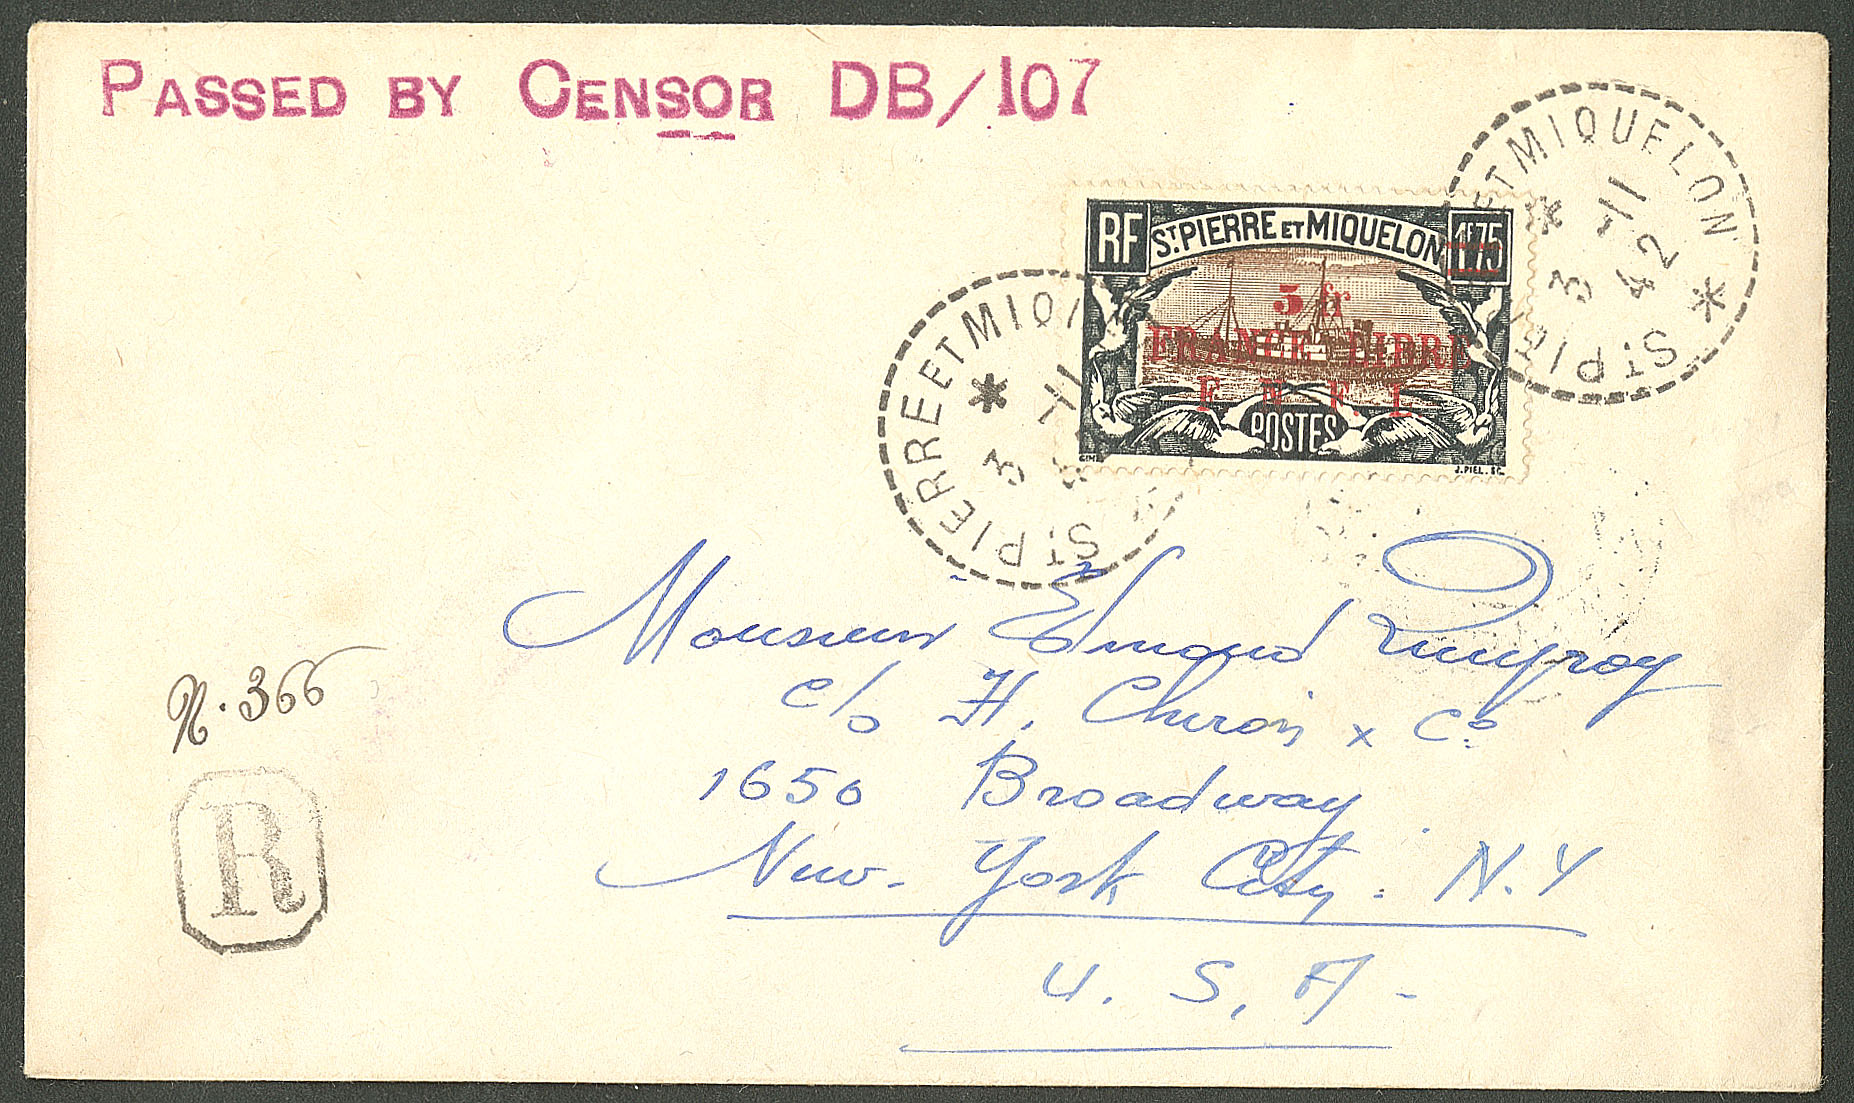 PASSED BY CENSOR DB/107
ST PIERRE ET MIQUELON
3 -11 42
RF ST PIERRE ET MIQUELON 1F75
5 fr
FRANCE LIBRE
F. N. F. L.
POSTES
J. PIEL. SC.
ST PIERRE ET MIQ
3 -11
Monsieur Edmond
c/o H. Chiron & Co
1650 Broadway
New-York City. N.Y
U. S. A -
N. 366
R